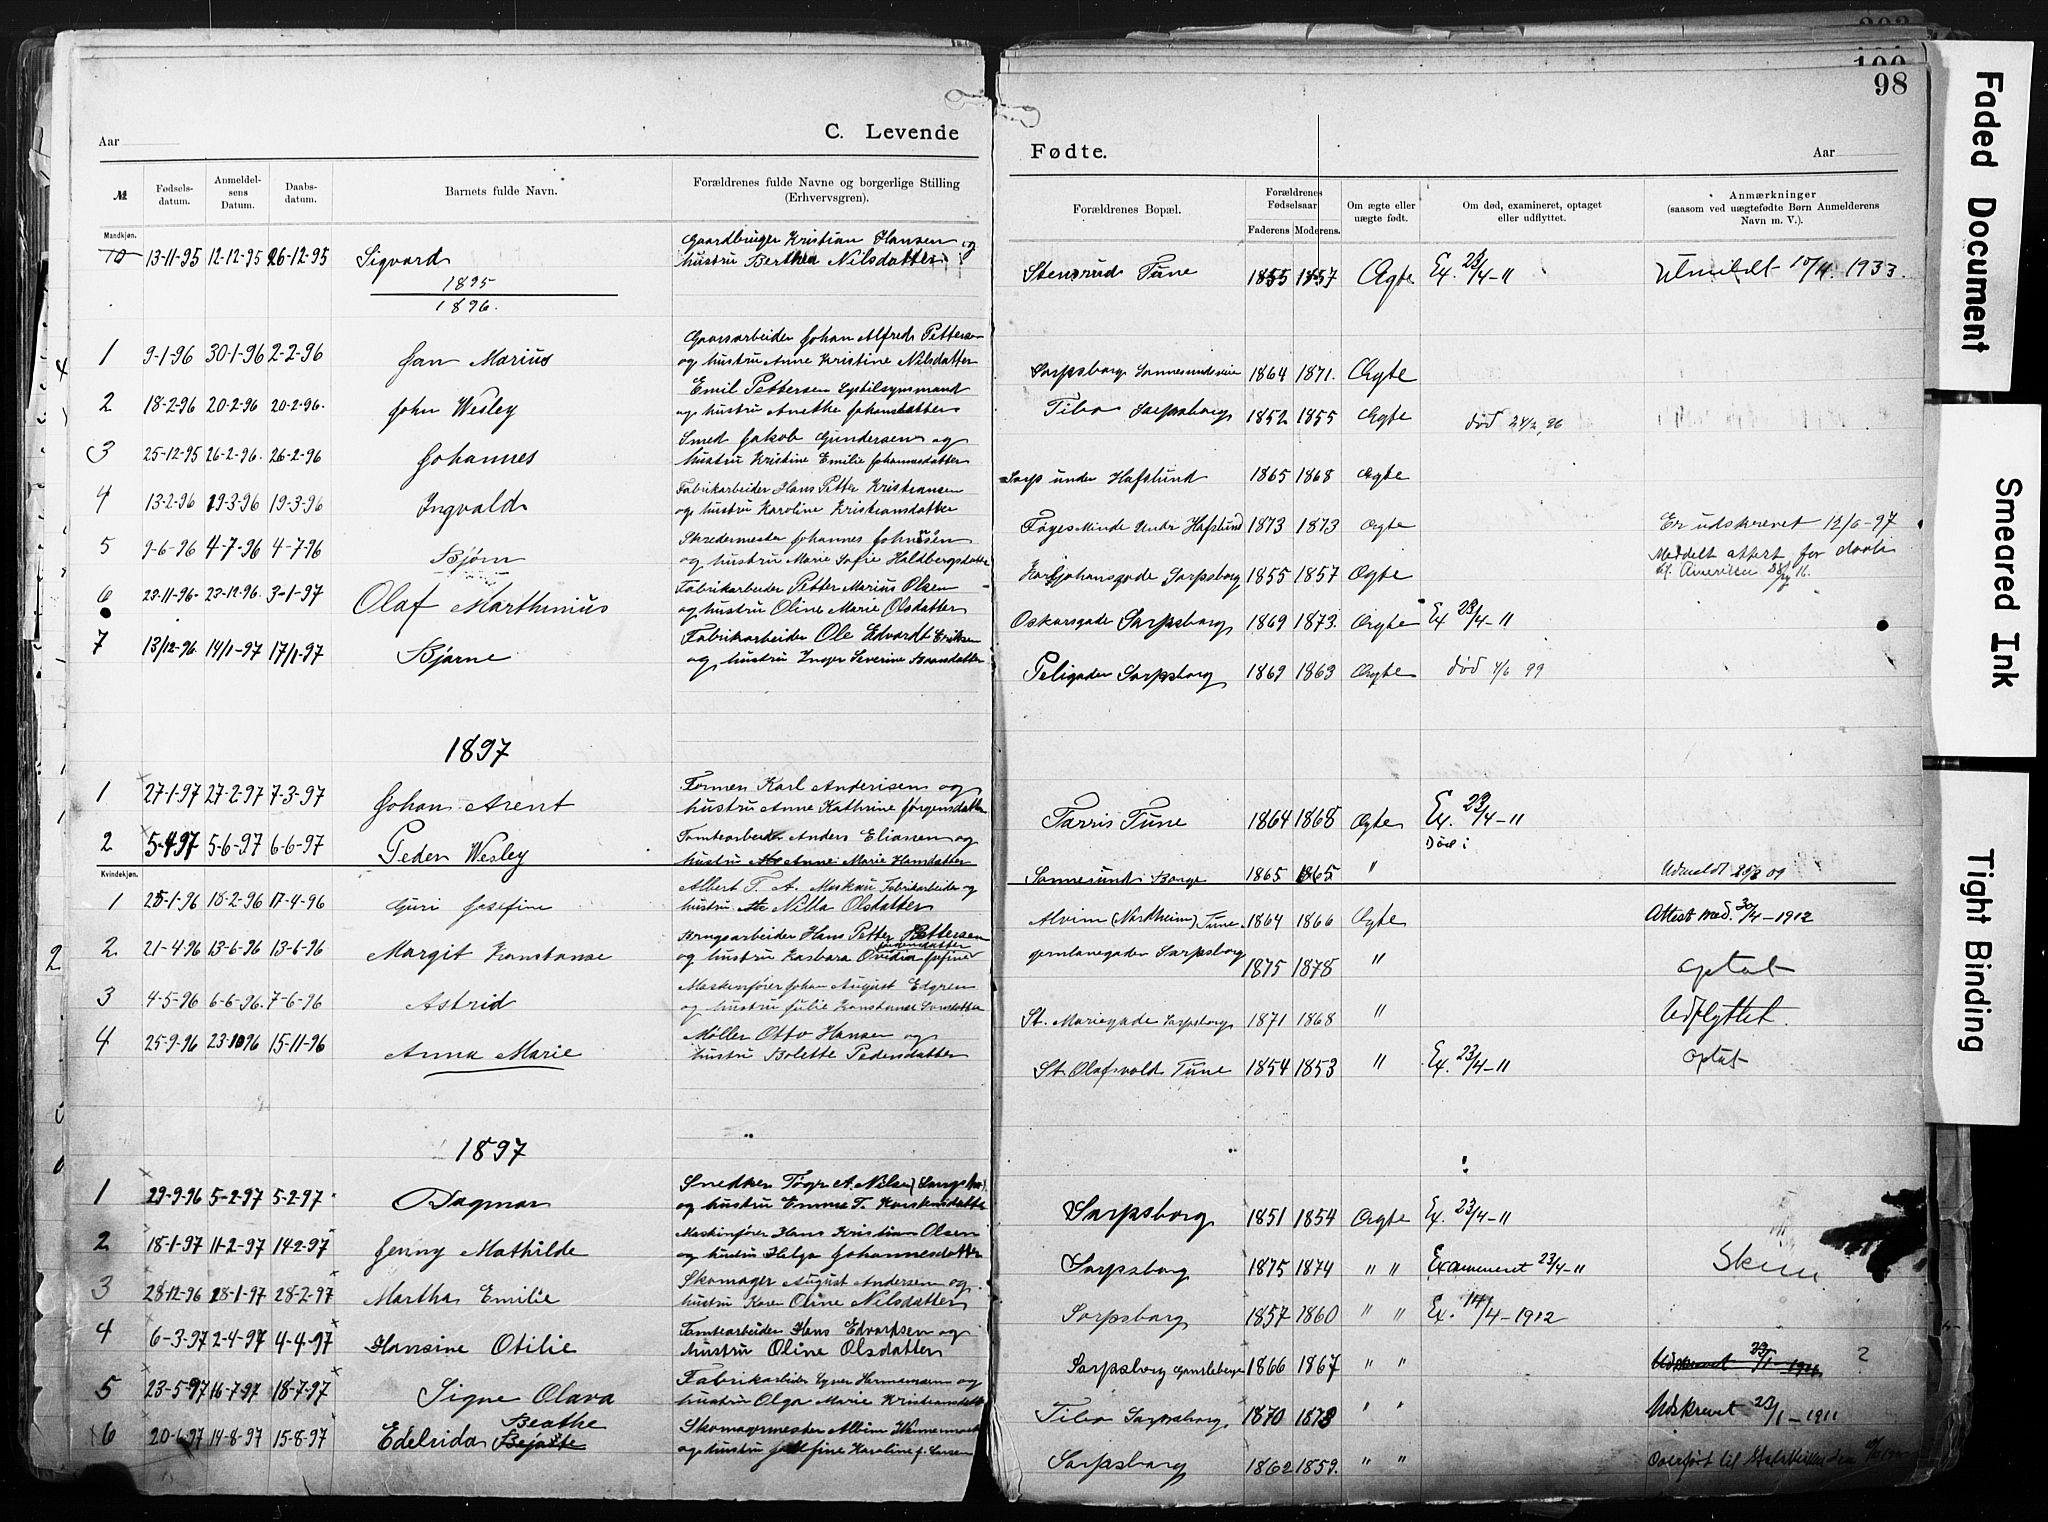 98
C. Levende
Fødte.
Aar
Aar
№
Fødsels-datum.
Anmeldelsens Datum.
Daabsdatum.
Barnets fulde Navn.
Forældrenes fulde Navne og borgerlige Stilling (Erhvervsgren).
Forældrenes Bopæl.
Forældrenes Fødselsaar
Faderens
Moderens.
Om ægte eller uægte født.
Om død, examineret, optaget eller udflyttet.
Anmærkninger (saasom ved uægtefødte Børn Anmelderens Navn m. V.).
Mandkjøn.
10 13-11-95 12-12-95 26-12-95 Sigvard Gaardbruger Kristian Hansen og
hustru Berthea Nilsdatter Stensrud Tune 1855 1857 Ægte Ex. 23/4-11 Utmeldt 10/4. 1933.
1895
1896.
1 9-1-96 30-1-96 2-2-96 Jan Marius Johan Alfred Pettersen
og hustru Anne Kristine Nilsdatter Sarpsborg Sannesundsveien 1864 1871. Ægte
2 18-2-96 20-2-96 20-2-96. John Wesley Emil Pettersen
og hustru Anethe Johansdatter Sarpsborg 1852 1855 Ægte død 24/2 96
3 25-12-95 26-2-96. 26-2-96 Johannes Smed Jakob Gundersen og
hustru Kristine Emilie Johannesdatter Sarp under Hafslund 1865 1868 Ægte
4 13-2-96 19-3-96 19-3-96 Ingvald Fabrikarbeider Hans Petter Kristiansen
og hustru Karoline Kristiansdatter Hafslund 1873 1873 Ægte Er udskrevet 12/6-97
5 9-6-96 4-7-96 4-7-96 Bjørn Skredermester Johannes Johnsen
og hustru Marie Sofie Haldbergsdatter Karljohansgade Sarpsborg 1855 1857 Ægte Meddelt attest for daab
til Amerika
6 23-11-96 23-12-96. 3-1-97 Olaf Marthinius Fabrikarbeider Petter Marius Olsen
og hustru Oline Marie Olsdatter Oskarsgade Sarpsborg 1869 1873. Ægte Ex 23/4-11
7 13/12-96 14/1-97 17/1-97 Bjarne Fabrikarbeider Ole Edvardt Eriksen
og hustru Inger Severine Sarpsborg 1869 1863 Ægte død 4/6 99
1897
1 27-1-97 27-2-97 7-3-97 Johan Arent Karl Andersen og
hustru Anne Kathrine Jørgensdatter Tune 1864 1868 Ægte Ex. 23/4-11
2 5-4-97 5-6-97 6-6-97 Peder Wesley Tomtearbeider Anders Eliassen og
hustru Anne Marie Hansdatter Sannesund Borge 1865 1865 " Død i Udmeldt
Kvindekjøn.
1 25-1-96 18-2-96 17-4-96 Guri Josefine Albert T. A. Moskau Fabrikarbeider og
hustru Nilla Olsdatter Alvim (Nordheim) Tune. 1864 1866 Ægte Attest med. 30/4-1912
2 21-4-96 13-6-96 13-6-96 Margit Konstanse Brugsarbeider Hans Petter Pettersen
og hustru Kasbara Ovidia Josefine Jernbanegaden Sarpsborg 1875 1878 " optat
3 4-5-96 6-6-96. 7-6-96 Astrid Maskinfører Johan August Edgren
og hustru Julie Konstanse St. Mariegade Sarpsborg 1871 1868 " Udflyttet.
4 25-9-96 23-10-96 15-11-96 Anna Marie Møller Otto Hansen og
hustru Bolette Pedersdatter St. Olafsvold Tune 1854 1853 " Ex. 23/4-11 optat
1897
1 29-9-96 5-2-97 5-2-97 Dagmar Snedker A. Nilsen
og hustru Emma T. Sarpsborg 1851 1854 Ægte Ex. 23/4-11
2 18-1-97 11-2-97 14-2-97 Jenny Mathilde Maskinfører Hans Kristian Olsen
og hustru Helga Johannesdatter Sarpsborg 1875 1874 " " Examineret 23/4-11
3 28-12-96 28-1-97 28-2-97 Martha Emilie Skomager August Andersen og
hustru Karen Oline Nilsdatter Sarpsborg 1857 1860 " " Ex. 14/4-1912
4 6-3-97 2-4-97 4-4-97 Hansine Otilie Tomtearbeider Hans Edvardsen og
hustru Oline Olsdatter Sarpsborg 1866 1867 " " Udskrevet 23/1-1911 ?
5 23-5-97 16-7-97 18-7-97 Signe Olava Fabrikarbeider Hermansen og
hustru Olga Marie Kristiansdatter Sarpsborg 1870 1873 " " Udskrevet 23/1-1911
6 20-6-97 14-8-97 15-8-97 Edelrida Beathe Skomagermester Albin
og hustru Josefine Karoline f. Larsen Sarpsborg 1862 1859. " " Overført til
Faded Document
Smeared Ink
Tight Binding